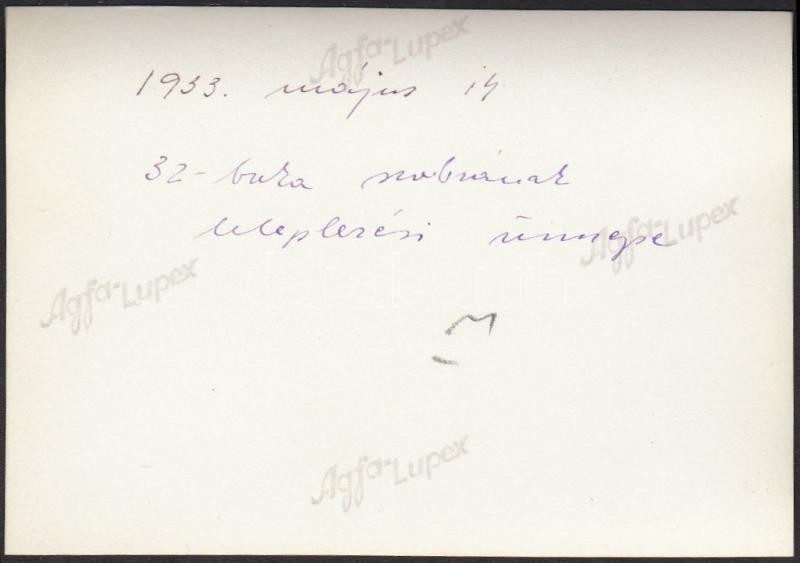 Agfa-Lupex
1933. május 14
32-baka szobrának
leleplezési ünnepe
Agfa-Lupex
Agfa-Lupex
darabanth
M
Agfa-Lupex